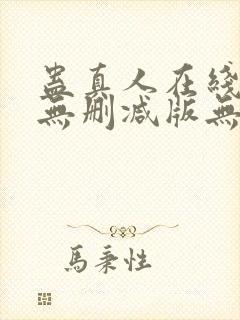 蠱真人在綫
無刪減版無
馬秉性